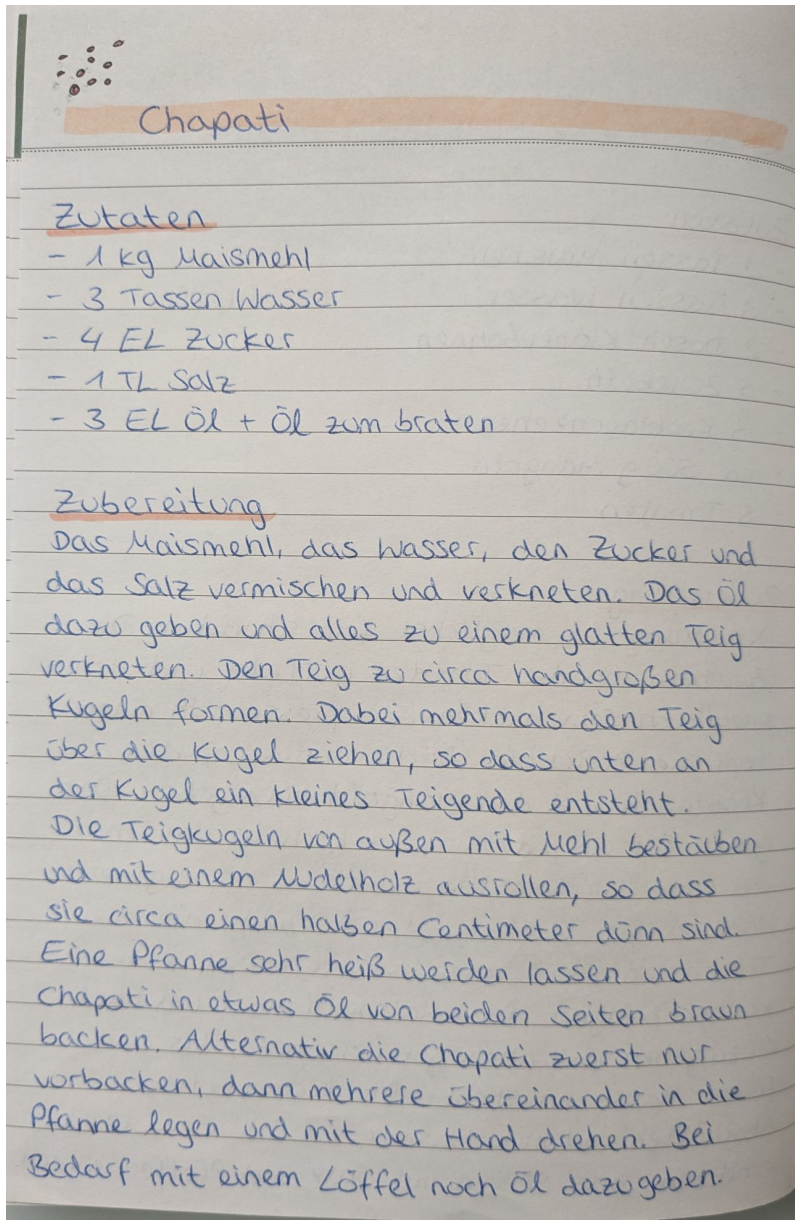 Chapati
Zutaten
- 1 kg Maismehl
- 3 Tassen Wasser
- 4 EL Zucker
- 1 TL Salz
- 3 EL Öl + Öl zum braten
Zubereitung
Das Maismehl, das Wasser, den Zucker und
das Salz vermischen und verkneten. Das Öl
dazu geben und alles zu einem glatten Teig
verkneten. Den Teig zu circa handgroßen
Kugeln formen. Dabei mehrmals den Teig
über die Kugel ziehen, so dass unten an
der Kugel ein kleines Teigende entsteht.
Die Teigkugeln von außen mit Mehl bestäuben
und mit einem Nudelholz ausrollen, so dass
sie circa einen halben Centimeter dünn sind.
Eine Pfanne sehr heiß werden lassen und die
Chapati in etwas Öl von beiden Seiten braun
backen. Alternativ die Chapati zuerst nur
vorbacken, dann mehrere übereinander in die
Pfanne legen und mit der Hand drehen. Bei
Bedarf mit einem Löffel noch Öl dazugeben.